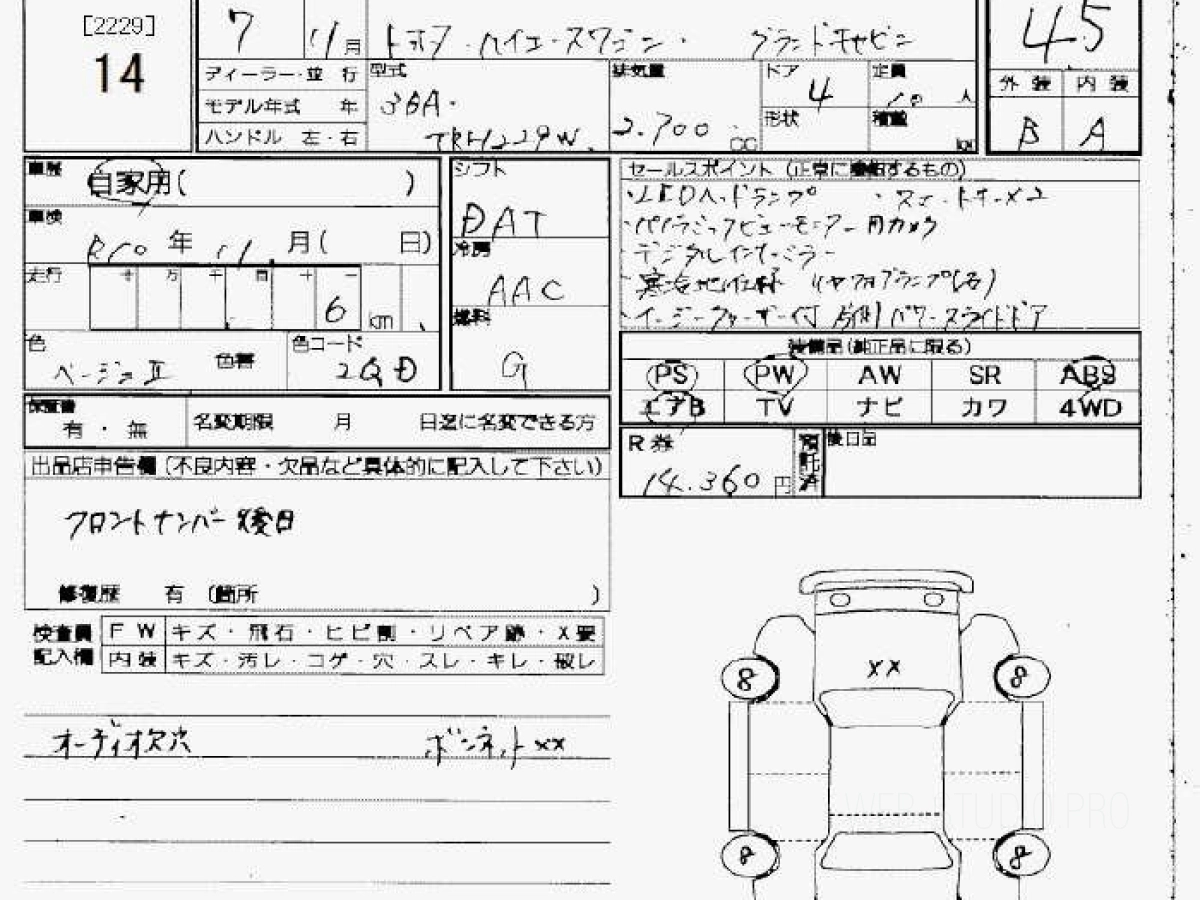 [2229]
14
7 11月 トヨタ・ハイエースワゴン・ グランドキャビン
4.5
ディーラー・並 行
モデル年式 年
ハンドル 左・右
型式 3BA・
TRH229W.
排気量 2.700 CC
ドア 4
定員 10 人
形状
積載 kg
外 装 内 装
B A
車歴 自家用( )
車検 R10 年 11.月( 日)
走行 十 万 千 百 十 一
6 km
色 ベージュⅡ 色替
色コード 2QD
シフト
DAT
冷房
AAC
燃料
G
セールスポイント (正常に機能するもの)
・LEDヘッドランプ ・スマートキー×2
・パノラミックビューモニター用カメラ
・デジタルインナーミラー
・寒冷地仕様 (リヤフォグランプ(右))
・イージークローザー付 片側パワースライドドア
装備品(純正品に限る)
PS PW AW SR ABS
エアB TV ナビ カワ 4WD
保証書
有 ・ 無
名変期限 月 日迄に名変できる方
R 券
14.360 円
預託済
後日品
出品店申告欄 (不良内容・欠品など具体的に記入して下さい)
フロントナンバー後日
修復歴 有 (箇所 )
検査員
記入欄
F W キズ・飛石・ヒビ割・リペア跡・X要
内 装 キズ・汚レ・コゲ・穴・スレ・キレ・破レ
オーディオ欠穴 ボンネットxx
xx
8 8
8 8
WEB STUDIO PRO